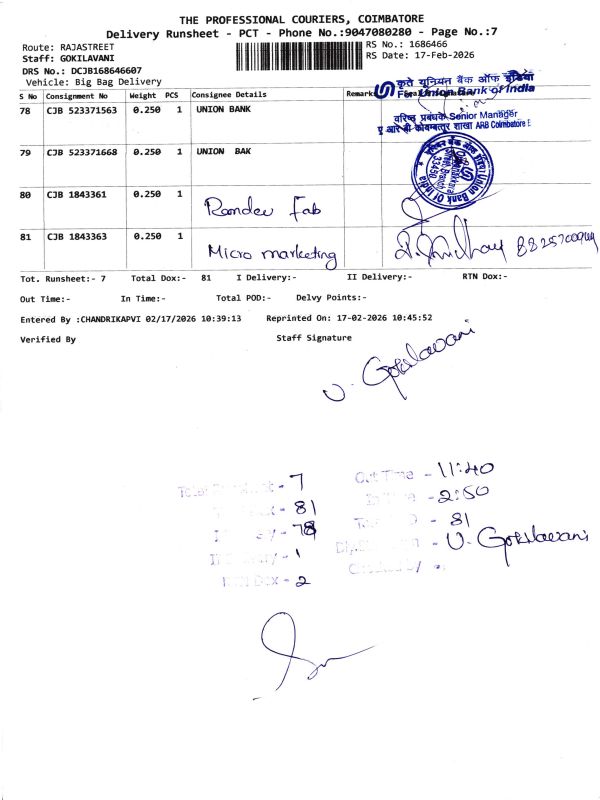 THE PROFESSIONAL COURIERS, COIMBATORE
Delivery Runsheet - PCT - Phone No.:9047080280 - Page No.:7
Route: RAJASTREET
RS No.: 1686466
Staff: GOKILAVANI
RS Date: 17-Feb-2026
DRS No.: DCJB168646607
Vehicle: Big Bag Delivery
S No Consignment No Weight PCS Consignee Details Remarks
कृते यूनियन बैंक ऑफ इंडिया
For Union Bank of India
78 CJB 523371563 0.250 1 UNION BANK
वरिष्ठ प्रबंधक Senior Manager
ए आर बी कोयम्बत्तूर शाखा ARB Coimbatore B
79 CJB 523371668 0.250 1 UNION BAK
Union Bank Of India
33450
80 CJB 1843361 0.250 1 Ramdev Fab
81 CJB 1843363 0.250 1 Micro marketing
Tot. Runsheet:- 7 Total Dox:- 81 I Delivery:- II Delivery:- RTN Dox:-
Out Time:- In Time:- Total POD:- Delvy Points:-
Entered By :CHANDRIKAPVI 02/17/2026 10:39:13 Reprinted On: 17-02-2026 10:45:52
Verified By Staff Signature
U. Gokilavani
7
81
78
1
RTN Dox - 2
Out Time - 11:40
In Time - 2:50
81
U. Gokilavani